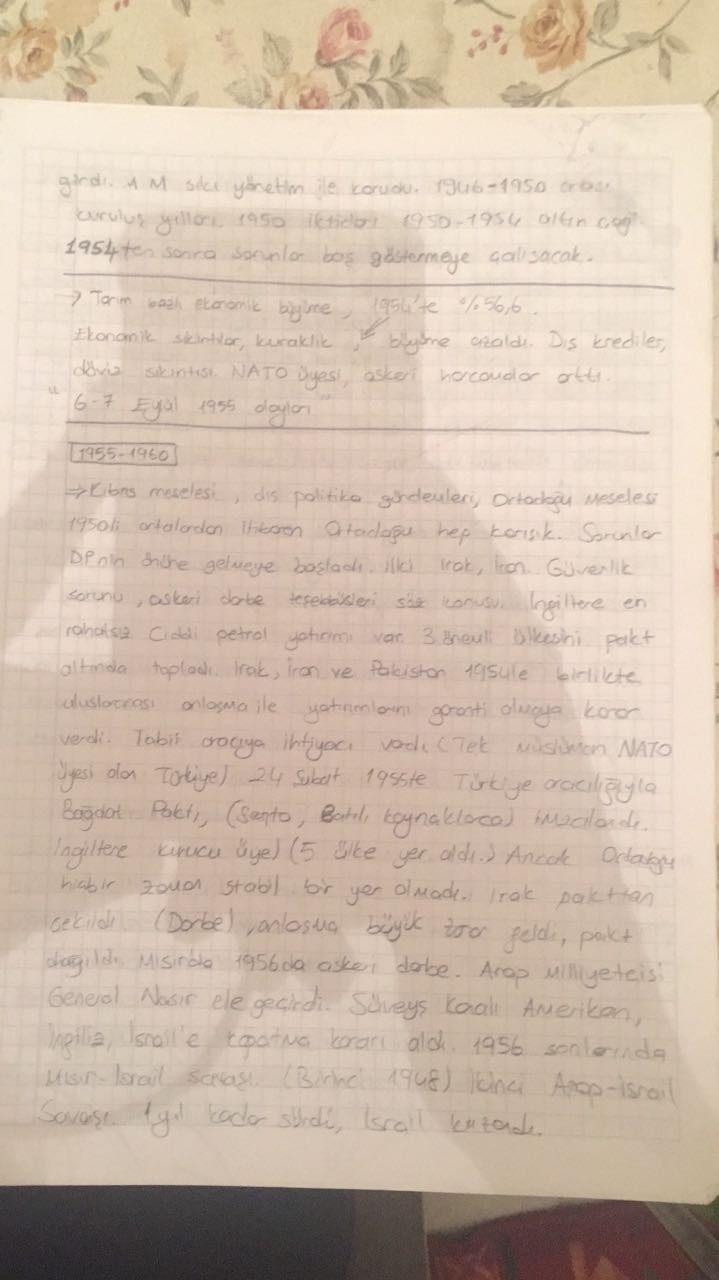 girdi. AM sıkı yönetim ile korudu. 1946-1950 arası
kuruluş yılları. 1950 iktidarı 1950-1954 altın çağ.
1954ten sonra sorunlar baş göstermeye çalışacak.
→ Tarım bazlı ekonomik büyüme, 1954'te %56,6.
Ekonomik sıkıntılar, kuraklık, büyüme azaldı. Dış krediler,
döviz sıkıntısı. NATO üyesi, askeri harcamalar arttı.
"6-7 Eylül 1955 olayları"
1955-1960
⇒ Kıbrıs meselesi, dış politika gündemleri, Ortadoğu Meselesi
1950li ortalardan itibaren Ortadoğu hep karışık. Sorunlar
DPnin önüne gelmeye başladı. İlki Irak, İran. Güvenlik
sorunu, askeri darbe teşebbüsleri söz konusu. İngiltere en
rahatsız Ciddi petrol yatırımı var. 3 önemli ülkesini pakt
altında topladı. Irak, İran ve Pakistan 1954le birlikte
uluslararası anlaşma ile yatırımlarını garanti almaya karar
verdi. Tabii aracıya ihtiyacı vardı. (Tek müslüman NATO
üyesi olan Türkiye) 24 Şubat 1955te Türkiye aracılığıyla
Bağdat Paktı, (Sento, Batılı kaynaklarca) imzalandı.
İngiltere kurucu üye) (5 ülke yer aldı.) Ancak Ortadoğu
hiçbir zaman stabil bir yer olmadı. Irak pakttan
çekildi (Darbe), anlaşma büyük zarar geldi, pakt
dağıldı. Mısırda 1956da askeri darbe. Arap Milliyetçisi
General Nasır ele geçirdi. Süveyş Kanalı Amerikan,
İngiliz, İsrail'e kapatma kararı aldı. 1956 sonlarında
Mısır-İsrail savaşı. (Birinci 1948) İkinci Arap-İsrail
Savaşı. 1 yıl kadar sürdü, İsrail kazandı.